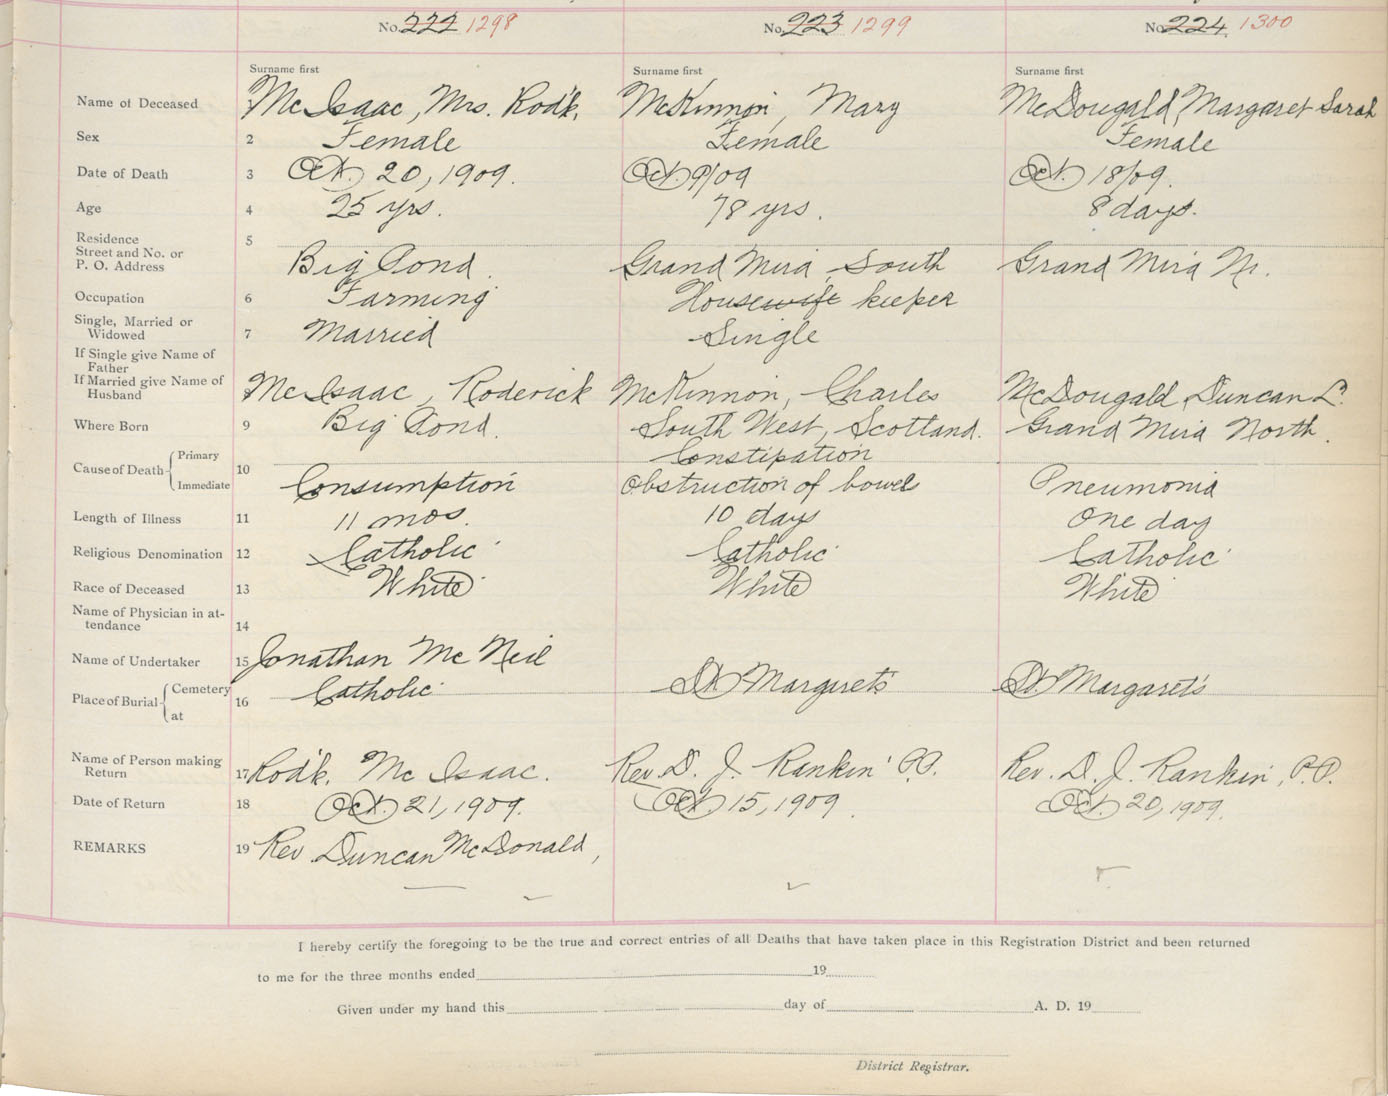 No. 222 1298 No. 223 1299 No. 224 1300
Surname first Surname first Surname first
Name of Deceased McIsaac, Mrs. Rod'k. McKinnon, Mary McDougald, Margaret Sarah
Sex 2 Female Female Female
Date of Death 3 Oct. 20, 1909. Oct 9/09 Oct. 18/09.
Age 4 25 yrs. 78 yrs. 8 days.
Residence 5
Street and No. or
P. O. Address Big Pond. Grand Mira South Grand Mira Nr.
Occupation 6 Farming Housewife keeper
Single, Married or
Widowed 7 Married Single
If Single give Name of
Father
If Married give Name of
Husband McIsaac, Roderick McKinnon, Charles McDougald, Duncan L.
Where Born 9 Big Pond. South West, Scotland. Grand Mira North.
Cause of Death Primary 10 Constipation
Immediate Consumption Obstruction of bowels Pneumonia
Length of Illness 11 11 mos. 10 days One day
Religious Denomination 12 Catholic Catholic Catholic
Race of Deceased 13 White White White
Name of Physician in at-
tendance 14
Name of Undertaker 15 Jonathan McNeil
Place of Burial Cemetery 16 Catholic St. Margaret's St. Margaret's
at
Name of Person making
Return 17 Rod'k. McIsaac. Rev. D. J. Rankin P.P. Rev. D. J. Rankin, P.P.
Date of Return 18 Oct. 21, 1909. Oct. 15, 1909. Oct. 20, 1909.
REMARKS 19 Rev Duncan McDonald,
I hereby certify the foregoing to be the true and correct entries of all Deaths that have taken place in this Registration District and been returned
to me for the three months ended 19
Given under my hand this day of A. D. 19
District Registrar.